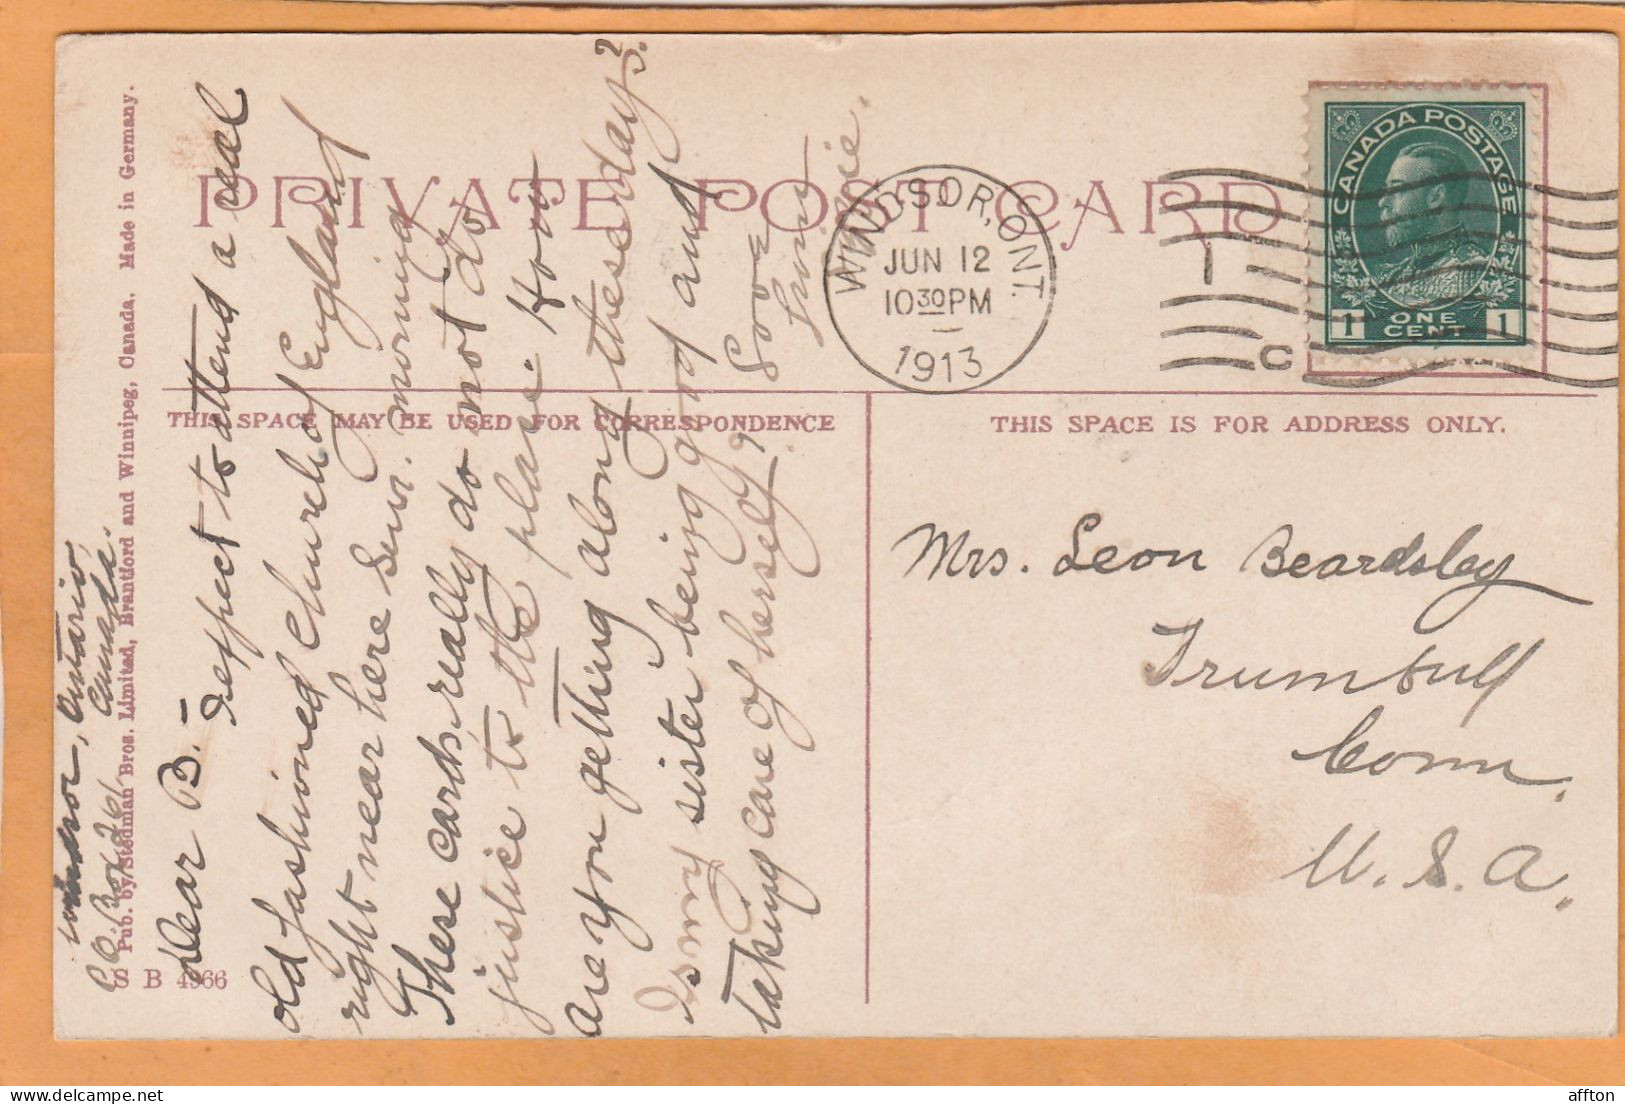 PRIVATE POST CARD
THIS SPACE MAY BE USED FOR CORRESPONDENCE
THIS SPACE IS FOR ADDRESS ONLY.
WINDSOR, ONT.
JUN 12
10 30 PM
1913
1
C
CANADA POSTAGE
1 ONE CENT 1
Mrs. Leon Beardsley
Trumbull
Conn.
U. S. A.
Windsor, Ontario,
Canada.
Box 261
Pub. by Stedman Bros. Limited, Brantford and Winnipeg, Canada. Made in Germany.
S B 4966
Dear B. – I expect to attend a real
old fashioned Church of England
right near here Sun. morning
These cards really do not do
justice to the place. How
are you getting along these days?
Is my sister being good and
taking care of herself?
Love
affton